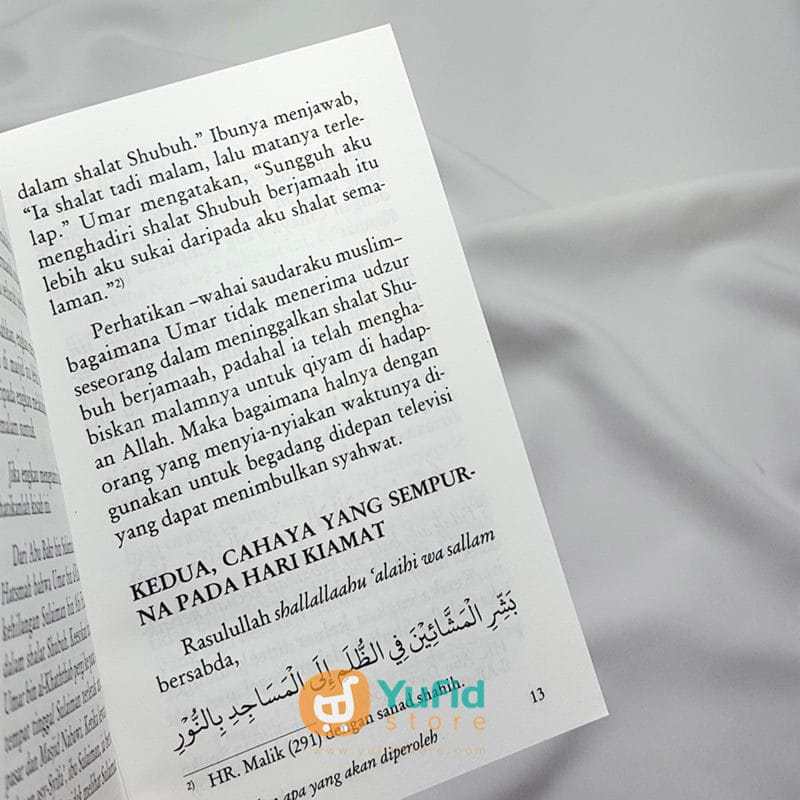 Jika engkau
Dari Abu Bakr bin
Hatsmah bahwa Umar bin
kehilangan Sulaiman bin
dalam shalat Shubuh.
Umar bin al-Khaththab pergi ke
tempat tinggal Sulaiman
pasar dan Masjid Nabawi.
dalam shalat Shubuh.” Ibunya menjawab,
“Ia shalat tadi malam, lalu matanya terle-
lap.” Umar mengatakan, “Sungguh aku
menghadiri shalat Shubuh berjamaah itu
lebih aku sukai daripada aku shalat sema-
laman.”2)
Perhatikan –wahai saudaraku muslim–
bagaimana Umar tidak menerima udzur
seseorang dalam meninggalkan shalat Shu-
buh berjamaah, padahal ia telah mengha-
biskan malamnya untuk qiyam di hadap-
an Allah. Maka bagaimana halnya dengan
orang yang menyia-nyiakan waktunya di-
gunakan untuk begadang didepan televisi
yang dapat menimbulkan syahwat.
KEDUA, CAHAYA YANG SEMPUR-
NA PADA HARI KIAMAT
Rasulullah shallallaahu ‘alaihi wa sallam
bersabda,
بَشِّرِ الْمَشَّائِيْنَ فِي الظُّلَمِ إِلَى الْمَسَاجِدِ بِالنُّوْرِ
2) HR. Malik (291) dengan sanad shahih.
13
apa yang akan diperoleh
Yufid
store